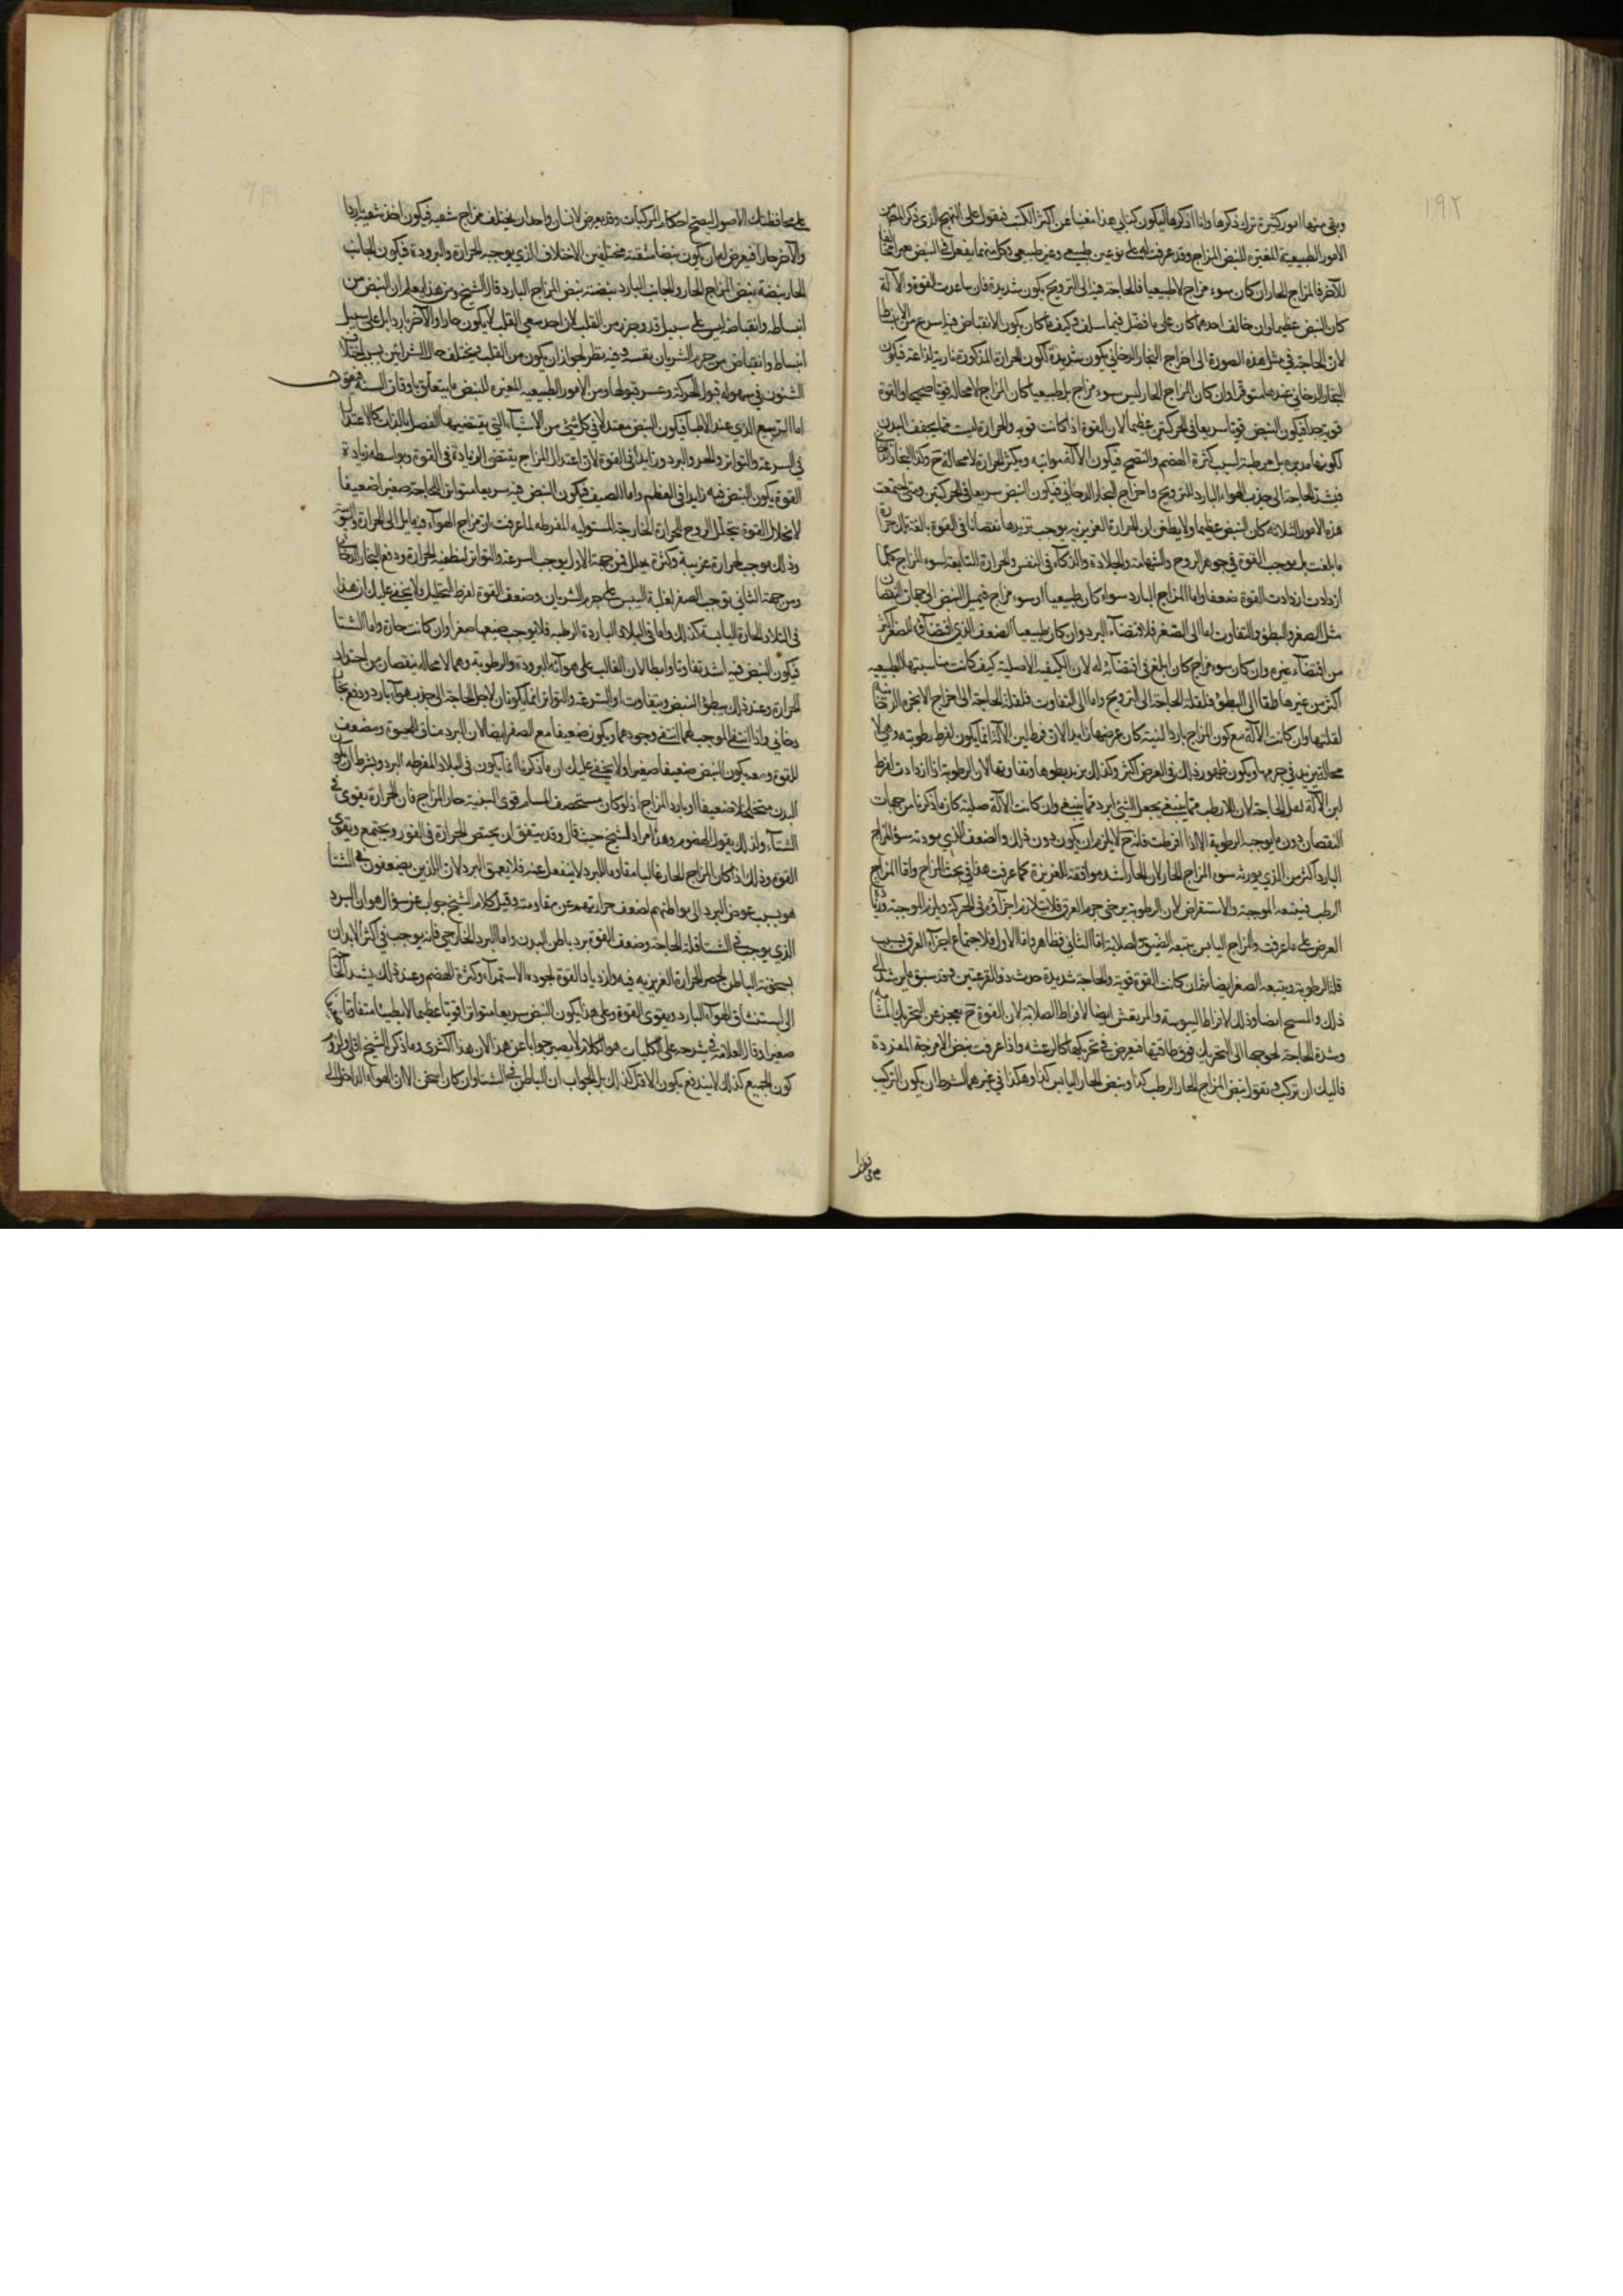 ١٩٢
وبقي منها امور كثيرة ترك ذكرها وانا اذكرها ليكون كتابي هذا مغنيا عن اكثر الكتب فنقول على النهج الذي ذكر المص ان
الامور الطبيعية المغيرة للنبض المزاج وقد عرفت انه على نوعين طبيعي وغير طبيعي وكل منهما يفعل في النبض
للآخر فالمزاج الحار ان كان سوء مزاج لا طبيعيا فالحاجة فيه الى الترويح يكون شديدة فان ساعدت القوة والآلة
كان النبض عظيما وان خالف احدهما كان على ما فصل فيما سلف وكيف ما كان يكون الانقباض فيه اسرع من الانبساط
لان الحاجة في مثل هذه الصورة الى اخراج البخار الدخاني يكون شديدة لكون الحرارة المذكورة نارية لذاعة فيكون
البخار الدخاني عندها متوقرا وان كان المزاج الحار ليس سوء مزاج بل طبيعيا كان المزاج لا محالة قويا صحيحا والقوة
قوية جدا فيكون النبض قويا سريعا في الحركتين عظيما لان القوة اذا كانت قوية والحرارة ليست مما يجفف البدن
لكونها بل مرطبة لسبب كثرة الهضم والنضج فيكون الآلة مواتية ويكثر الحرارة لا محالة ح وكذا البخار
فيشتد الحاجة الى جذب الهواء البارد للترويح واخراج البخار الدخاني فيكون النبض سريعا في الحركتين ومتى اجتمعت
هذه الامور الثلاثة كان النبض عظيما ولا يظن ان الحرارة الغريزية يوجب تزيدها نقصانا في القوة بالغة
ما بلغت بل يوجب القوة في جوهر الروح والشهامة والجلادة والذكاء في النفس والحرارة التابعة لسوء المزاج كلما
ازدادت ازدادت القوة ضعفا واما المزاج البارد سواء كان طبيعيا او سوء مزاج فيميل النبض الى جهات النقصان
مثل الصغر والبطؤ والتفاوت اما الى الصغر فلاقتضاء البرد وان كان طبيعيا الضعف الذي اقتضاؤه للصغر اكثر
من اقتضاء غيره وان كان سوء مزاج كان ابلغ في اقتضائه له لان الكيفية الاصلية كيف كانت مناسبتها للطبيعية
اكثر من غيرها واما الى البطؤ فلقلة الحاجة الى الترويح واما الى التفاوت فلقلة الحاجة الى اخراج الابخرة الدخانية
لقلتها وان كانت الآلة مع كون المزاج باردا لينة كان عرضها زايدا لان لين الآلة انما يكون لفرط رطوبته وهي لا
محالة يزيد في جرمها ويكون ظهور ذلك في العرض اكثر وكذلك يزيد بطوها وتفاوتها لان الرطوبة اذا ازدادت لفرط
لين الآلة لعل الحاجة لان الارطب مما ينبغي يجعل الشيء ابرد مما ينبغي وان كانت الآلة صلبة كان ما ذكرنا من جهات
النقصان دون ما يوجبه الرطوبة الا اذا افرطت فانه ح لا يلزم ان يكون دون ذلك والضعف الذي يورثه سوء المزاج
البارد اكثر من الذي يورثه سوء المزاج الحار لان الحار اشد موافقة للغريزة كما عرفت هذا في بحث المزاج واما المزاج
الرطب فيتبعه الموجية والاستعراض لان الرطوبة يرخي جرم العرق فلا يتلازم اجزاؤه في الحركة ويلزم الموجية
العرض على ما عرفت والمزاج اليابس يتبعه الضيق والصلابة اما الثاني فظاهر واما الاول فلاجتماع اجزاء العرق بسبب
قلة الرطوبة ويتبعه الصغر ايضا ثم ان كانت القوة قوية والحاجة شديدة حدث ذو القرعتين وقد سبق ما يرشد الى
ذلك والمتشنج ايضا وذلك لافراط اليبوسة والمرتعش ايضا لافراط الصلابة لان القوة ح يعجز عن التحريك
وشدة الحاجة تحوجها الى التحريك فوق طاقتها فيعرض في تحريكها كالرعشة واذا عرفت نبض الامزجة المفردة
فاليك ان تركب وتقول نبض المزاج الحار الرطب كذا ونبض الحار اليابس كذا وهكذا في غيرهما بشرط ان يكون التركيب
على محافظتك الاصول ليصح احكام المركبات وقد يعرض لانسان واحد ان يختلف مزاج شقيه فيكون احد شقيه باردا
والآخر حارا فيعرض له ان يكون نبضا شقيه مختلفين الاختلاف الذي يوجبه الحرارة والبرودة فيكون الجانب
الحار نبضه نبض المزاج الحار والجانب البارد نبضه نبض المزاج البارد قال الشيخ ومن هذا يعلم ان النبض من
انبساطه وانقباضه ليس على سبيل مد وجزر من القلب لان احد شقي القلب لا يكون حارا والآخر باردا بل على سبيل
انبساط وانقباض من جرم الشريان نفسه وفيه نظر لجواز ان يكون من القلب ويختلف حال الشرائين بسبب اختلاف
الشئون في سهولة قبول الحركة وعسر قبولها ومن الامور الطبيعية المغيرة للنبض ما يتعلق باوقات السنة
اما الربيع الذي عند الاطباء فيكون النبض معتدلا في كل شيء من الاشياء التي يقتضيها الفصل بالذات كالاعتدال
في السرعة والتواتر والحر والبرد وزايدا في القوة لان اعتدال المزاج يقتضي الزيادة في القوة وبواسطة زيادة
القوة يكون النبض فيه زايدا في العظم واما الصيف فيكون النبض فيه سريعا متواترا للحاجة صغيرا ضعيفا
لانحلال القوة بتحلل الروح للحرارة الخارجة المستولية المفرطة لما عرفت ان مزاج الهواء فيه مايل الى الحرارة واليبوسة
وذلك موجب لحرارة غريبة وكثرة تحلل فمن جهة الاول يوجب السرعة والتواتر لتطفية الحرارة ودفع البخار الدخاني
ومن جهة الثاني توجب الصغر لغلبة اليبس على جرم الشريان وضعف القوة لفرط التحليل ولا يخفى عليك ان هذا
في البلاد الحارة اليابسة كذلك واما في البلاد الباردة الرطبة فلا يوجب ضعفا صغرا وان كانت حارة واما الشتا
فيكون النبض فيه اشد تفاوتا وابطا لان الغالب على هوائه البرودة والرطوبة وهما لا محالة ينقصان من احتداد
الحرارة وعند ذلك يبطؤ النبض ويتفاوت اذ السرعة والتواتر انما يكونان لاجل الحاجة الى جذب هواء بارد ودفع بخار
دخاني واذا انتفى الموجب لهما انتفى وجودهما ويكون ضعيفا مع الصغر ايضا لان البرد مناف للحيوة ومضعف
للقوة ومعه يكون النبض ضعيفا صغيرا ولا يخفى عليك ان ما ذكرناه انما يكون في البلاد المفرطة البرد وبشرط ان يكون
البدن متخلخلا ضعيفا او بارد المزاج اذ لو كان مستحصف المسام قوي البنية حار المزاج فان الحرارة يقوى في
الشتاء ولذلك يقول الهضوم وهذا مراد الشيخ حيث قال وقد يتفق ان يحتقن الحرارة في الغور ويجتمع ويقوى
القوة وذلك اذا كان المزاج الحار غالبا مقاوما للبرد لا ينفعل عنه فلا يعمق البرد لان الذين يضعفون في الشتا
هو بسبب غوص البرد الى بواطنهم لضعف حرارتهم عن مقاومته وقيل كلام الشيخ جواب عن سؤال هو ان البرد
الذي يوجب في الشتا قلة الحاجة وضعف القوة برد باطن البدن واما البرد الخارجي فانه يوجب في اكثر الابدان
سخونة الباطن لحصر الحرارة الغريزية فيه وازدياد القوة لجودة الاستمراء وكثرة الهضم وعند ذلك يشتد الحاجة
الى استنشاق الهواء البارد ويقوى القوة وعلى هذا يكون النبض سريعا متواترا قويا عظيما لا بطيئا متفاوتا
صغيرا وقال العلامة في شرحه على الكليات هذا الكلام لا يصير جوابا عن هذا لان هذا اكثري وما ذكره الشيخ اقلي ولزوم
كون الجميع كذلك لا يندفع بكون الاقل كذلك بل الجواب ان الباطن في الشتا وان كان اسخن الا ان الهواء الداخل الى